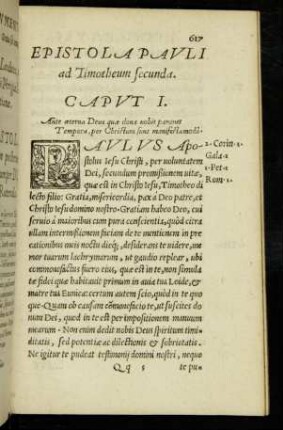 617
EPISTOLA PAVLI
ad Timotheum secunda.
CAPVT I.
Ante æterna Deus quæ dona nobis pararat
Tempora, per Christum sunt manifesta modò.
PAVLVS Apo-
stolus Iesu Christi, per voluntatem
Dei, secundum promissionem vitæ,
quæ est in Christo Iesu, Timotheo di
lecto filio: Gratia, misericordia, pax à Deo patre, et
Christo Iesu domino nostro. Gratiam habeo Deo, cui
seruio à maioribus in pura conscientia, quòd citra
ullam intermissionem faciam de te mentionem in pre
cationibus meis noctu dieq;, desiderans te videre, me-
mor tuarum lachrymarum, ut gaudio replear, ubi
commonefactus fuero eius, quæ est in te, non simula
tæ fidei quæ habitauit primum in auia tua Loide, &
matre tua Eunica: certum autem scio, quòd in te quo
que. Quam ob causam commonefacio te, ut suscites do
num Dei, quod in te est per impositionem manuum
mearum. Non enim dedit nobis Deus spiritum timi-
ditatis, sed potentiæ ac dilectionis & sobrietatis.
Ne igitur te pudeat testimonij domini nostri, neque
Qq 5 te pu-
2. Corin.
Gala. 2
1. Pet.
Rom. 1.